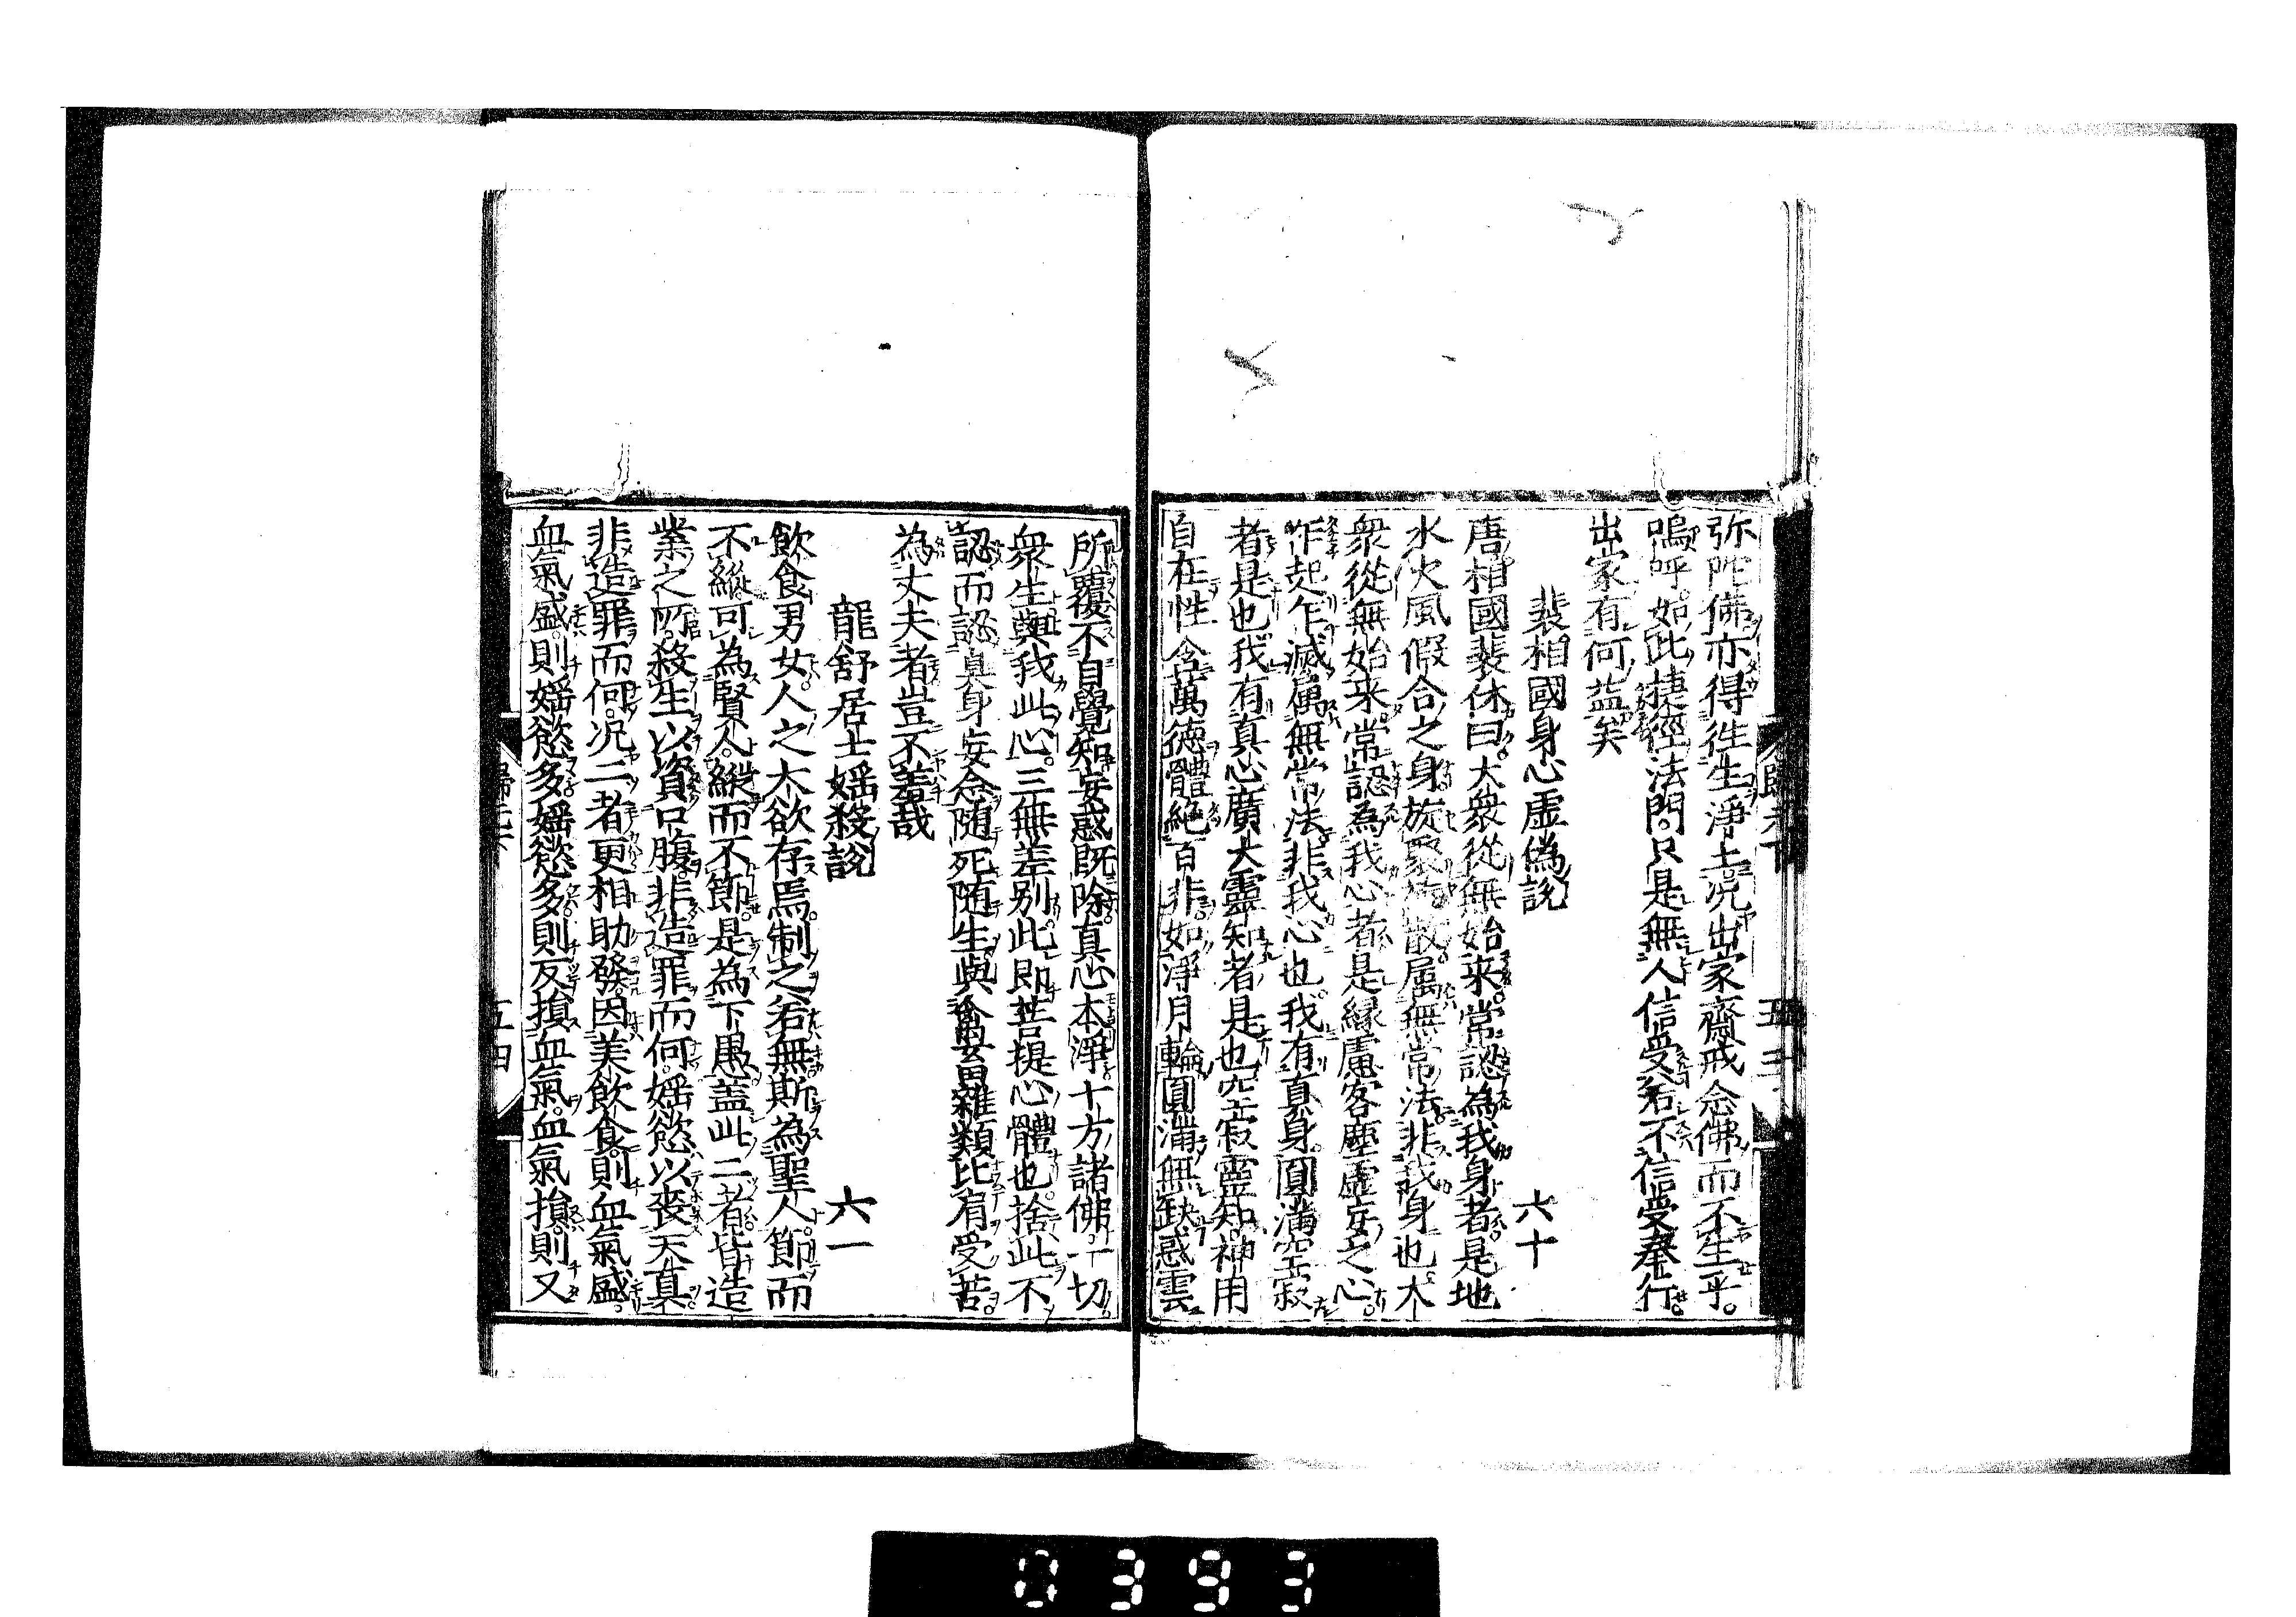 弥陀佛亦得徃生淨土况出家齋戒念佛而不生乎
嗚呼如此捷徑法門只是無人信受若不信受奉行
出家有何益矣
裴相國身心虚偽説 六十
唐相國裴休曰大衆從無始来常認為我身者是地
水火風假合之身旋聚旋散属無常法非我身也大
衆從無始来常認為我心者是縁慮客塵虚妄之心
乍起乍滅属無常法非我心也我有真身圓滿空寂
者是也我有真心廣大靈知者是也空寂靈知神用
自在性含萬徳體絶百非如淨月輪圓滿無缺惑雲
所覆不自覺知妄惑既除真心本淨十方諸佛一切
衆生與我此心三無差别此即菩提心體也捨此不
認而認臭身妄念随死随生與禽畜雜類比肩受苦
為丈夫者豈不羞哉
龍舒居士婬殺説 六一
飲食男女人之大欲存焉制之若無斯為聖人節而
不縱可為賢人縱而不節是為下愚盖此二者皆造
業之所殺生以資口腹非造罪而何婬慾以喪天真
非造罪而何况二者更相助發因美飲食則血氣盛
血氣盛則婬慾多婬慾多則反損血氣血氣損則又
五四
0393